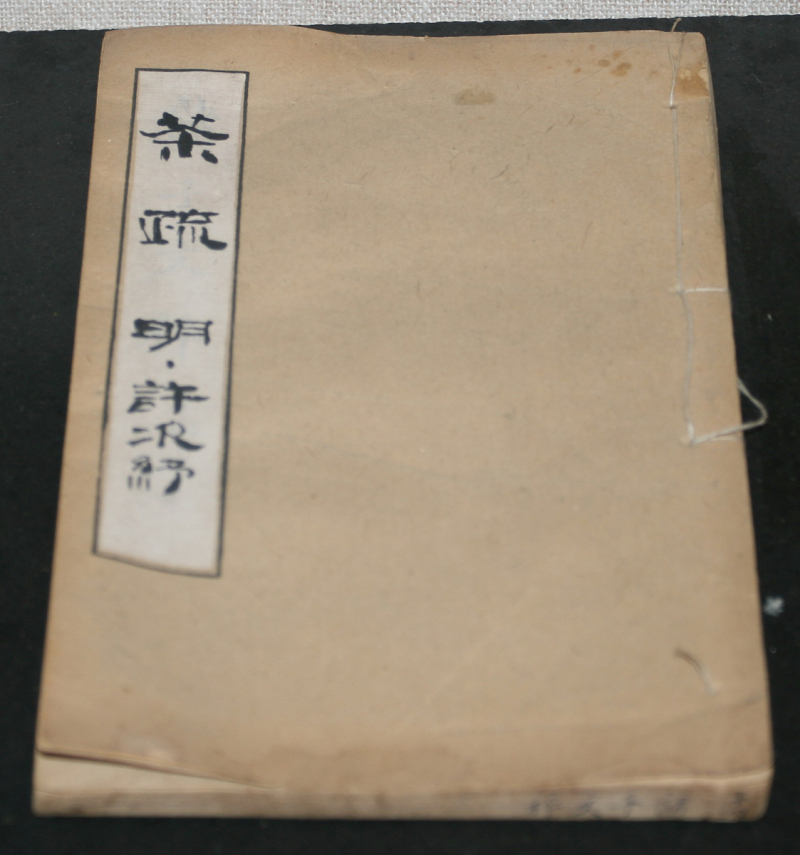 茶疏 明·許次紓